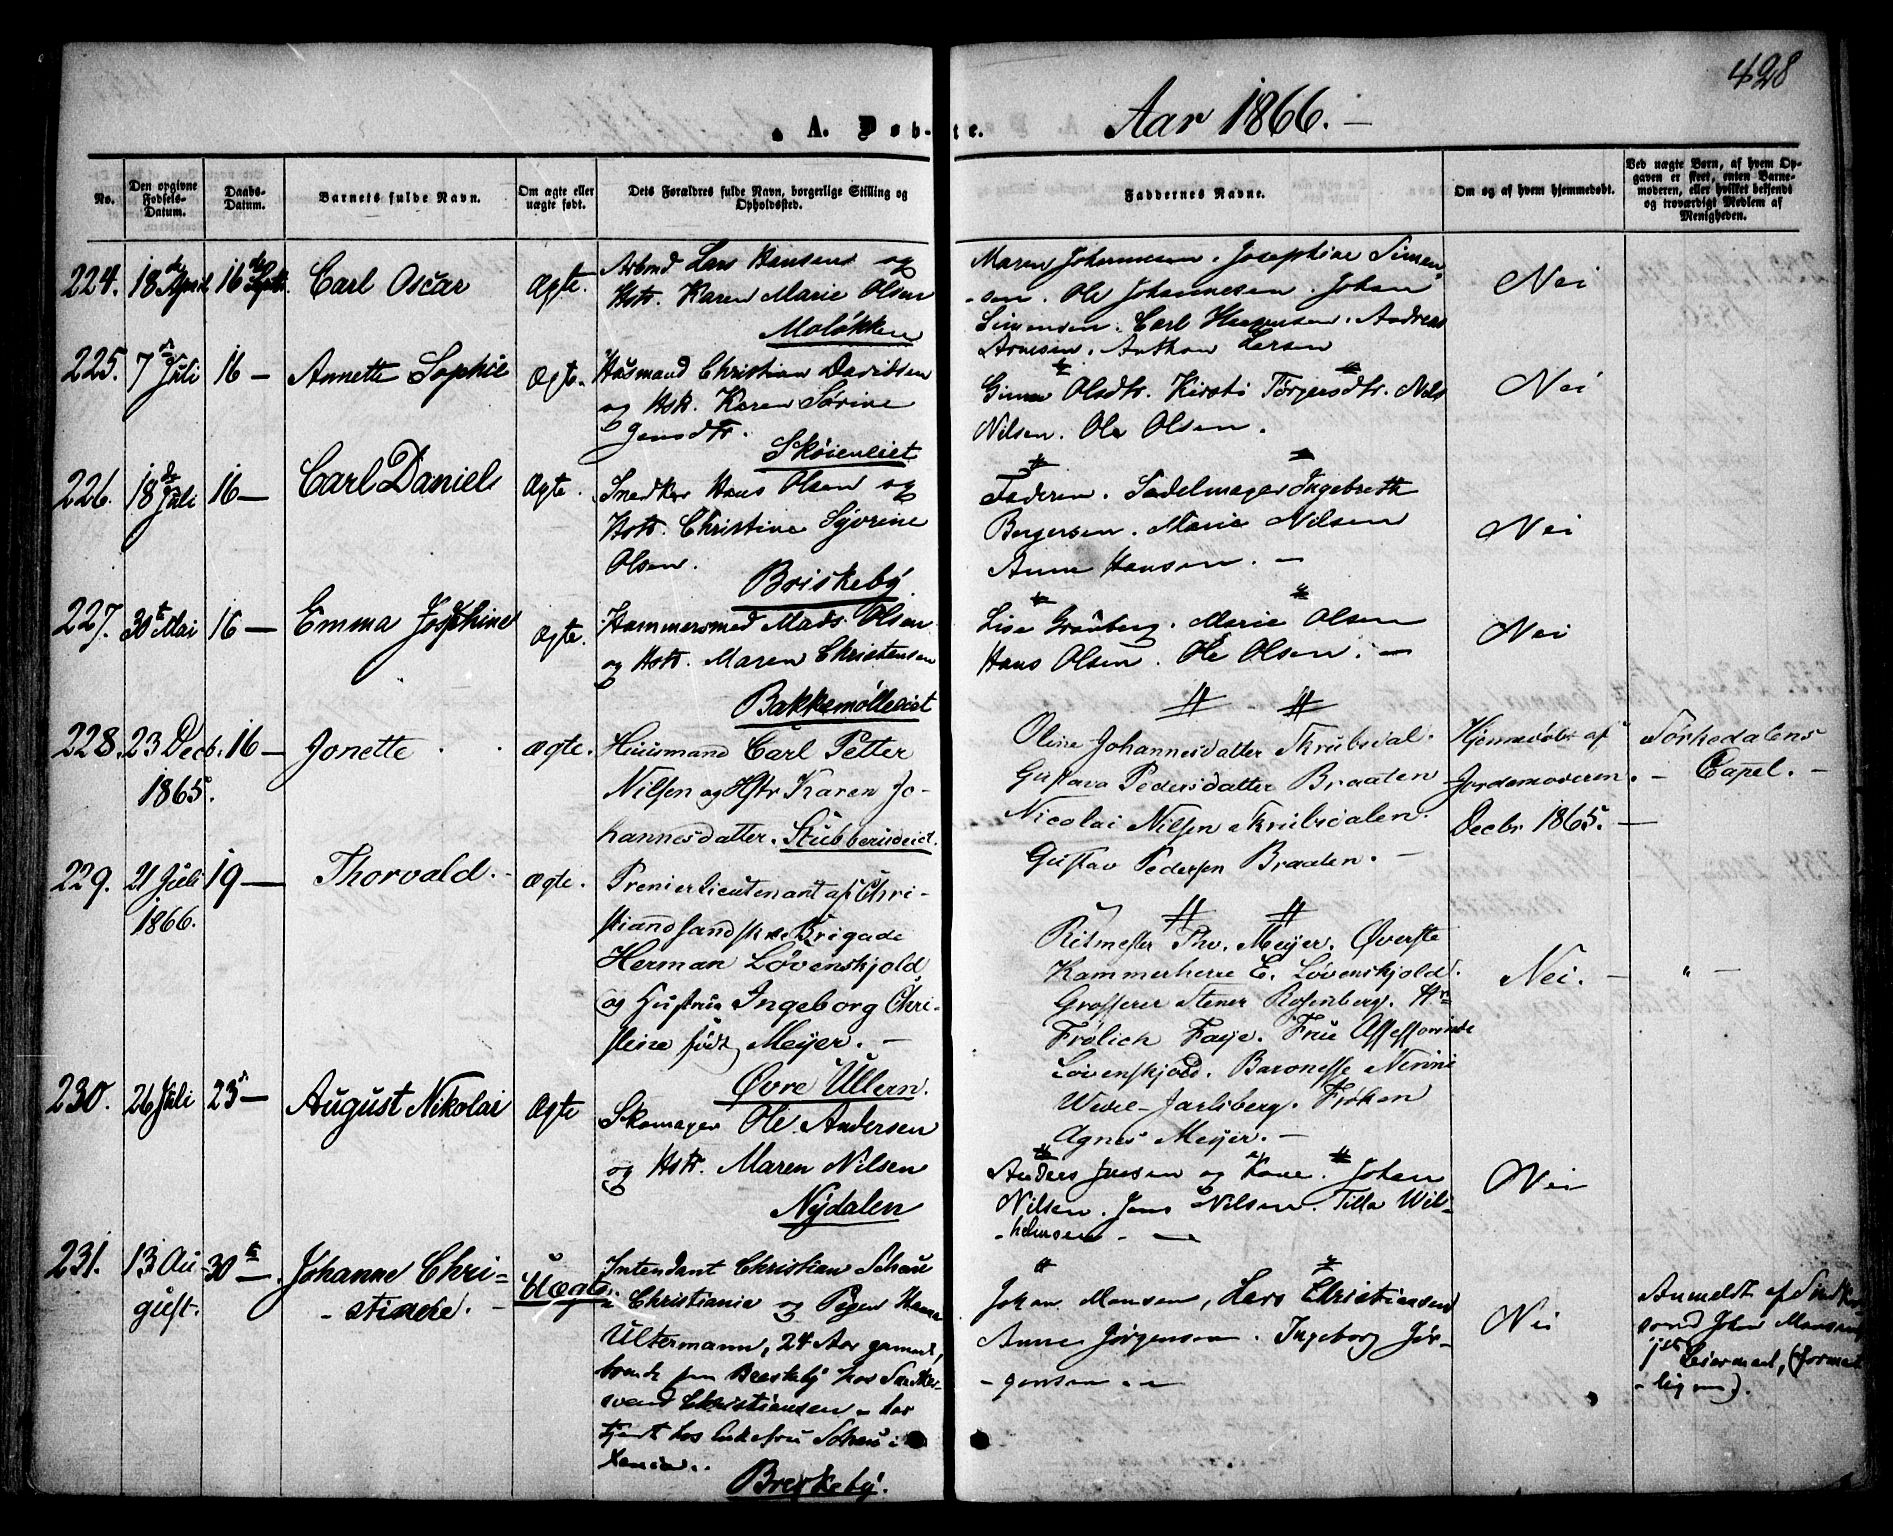 428
A. Døb-te. Aar 1866. –
No.
Den opgivne Fødsels-Datum.
Daabs-Datum.
Barnets fulde Navn.
Om ægte eller uægte født.
Dets Forældres fulde Navn, borgerlige Stilling og Opholdssted.
Faddernes Navne.
Om og af hvem hjemmedøbt.
Ved uægte Børn, af hvem Opgaven er skeet, enten Barnemoderen, eller hvilket bekjendt og troværdigt Medlem af Menigheden.
224. 18de April 16de Septr. Carl Oscar Ægte.
Arbmd Lars Hansen og
Hstr. Karen Marie Olsen
Moløkken
Maren Johannesen. Josephine Simen-
-sen. Ole Johannesen. Johan
Simensen. Carl Andreas
Arnesen. Anthon Larsen
Nei
225. 7 Juli 16 – Annette Sophie Ægte.
Husmand Christian Davidsen
og Hstr. Karen Sørine
Jensdtr.
Skøienleiet
Olsdtr. Kirsti Torgersdtr. Nels
Nilsen. Ole Olsen.
Nei
226. 18de Juli 16 – Carl Daniel Ægte.
Snedker Hans Olsen og
Hstr. Christine Syverine
Olsen.
Briskeby.
Faderen. Sadelmager Ingebreth
Bergersen. Marie Nilsen
Anne Hansen. –
Nei
227. 30te Mai 16 – Emma Josephine Ægte.
Hammersmed Mads Olsen
og Hstr. Maren Christensen
Bakkemølleeiet
Lise Granberg. Marie Olsen
Hans Olsen. Ole Olsen. –
Nei
228. 23 Decb. 16 – Jonette Ægte.
1865.
Huusmand Carl Petter
Nilsen og Hstr Karen Jo-
hannesdatter.
Oline Johannesdatter Skrubdal.
Gustava Pedersdatter Braaten
Nicolai Nilsen Skrubdalen.
Gustav Pedersen Braaten. –
Hjemmedøbt af
Jordemoderen. –
Decbr 1865. –
Sørkedalens
Capel. –
229. 21 Juli 19 – Thorvald. – Ægte.
1866.
Premierlieutenant af Chri-
stiandsandske Brigade
Herman Løvenskjold
og Hustrue Ingeborg Chri-
stine født Meyer. –
Øvre Ullern.
Ritmester Thv. Meyer. Øverste
Kammerherre E. Løvenskjold.
Grosserer Stener Rosenberg. Hr
Frølich Faye. Frue Assessorinde
Løvenskjold. Baronesse
Wedel-Jarlsberg. Frøken
Agnes Meyer. –
Nei. –
" –
230. 26 Juli 23 – August Nikolai Ægte
Skomager Ole Andersen
og Hstr. Maren Nilsen
Nydalen
Anders Jensen og Kone. Johan
Nilsen. Jens Nilsen. Tilla Wil-
-helmsen – –
Nei
231. 13 Au- 30te – Johanne Chri- Uægte.
gust. -stiane. –
Intendant Christian Schou
i Christiania og Pigen Hanna
Ultermann, 24 Aar gammel,
boende paa Briskeby hos Snedker-
svend Christiansen – har
tjent hos Enkefru Schou i
Xania..
Breskeby.
Johan Monsen, Lars Christiansen
Anne Jørgensen. Ingeborg Jør-
-gensen. –
Nei
Anmeldt af Snedker-
svend Johan Monsen
1ste Leiermaal,